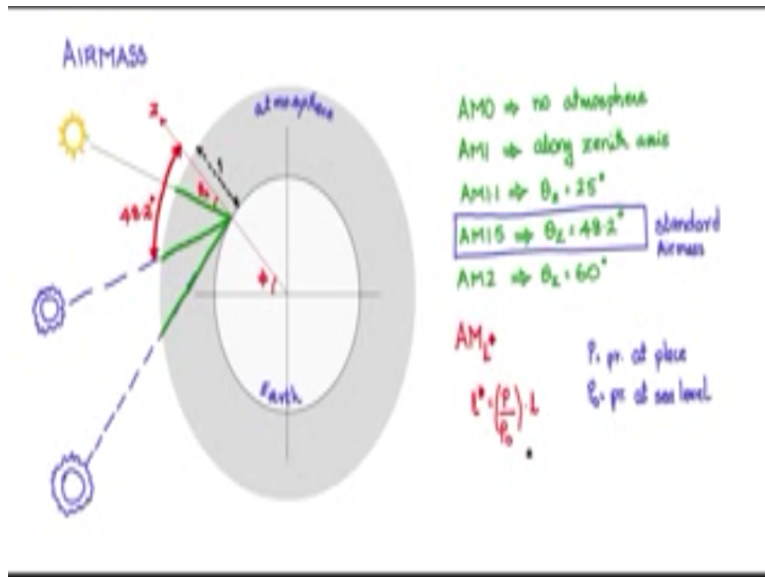 AIRMASS
atmosphere
48.2°
Earth
AM0 ⇒ no atmosphere
AM1 ⇒ along zenith axis
AM1.1 ⇒ θz = 25°
AM1.5 ⇒ θz = 48.2°
standard
Airmass
AM2 ⇒ θz = 60°
AM
P = pr. at place
P₀ = pr. at sea level